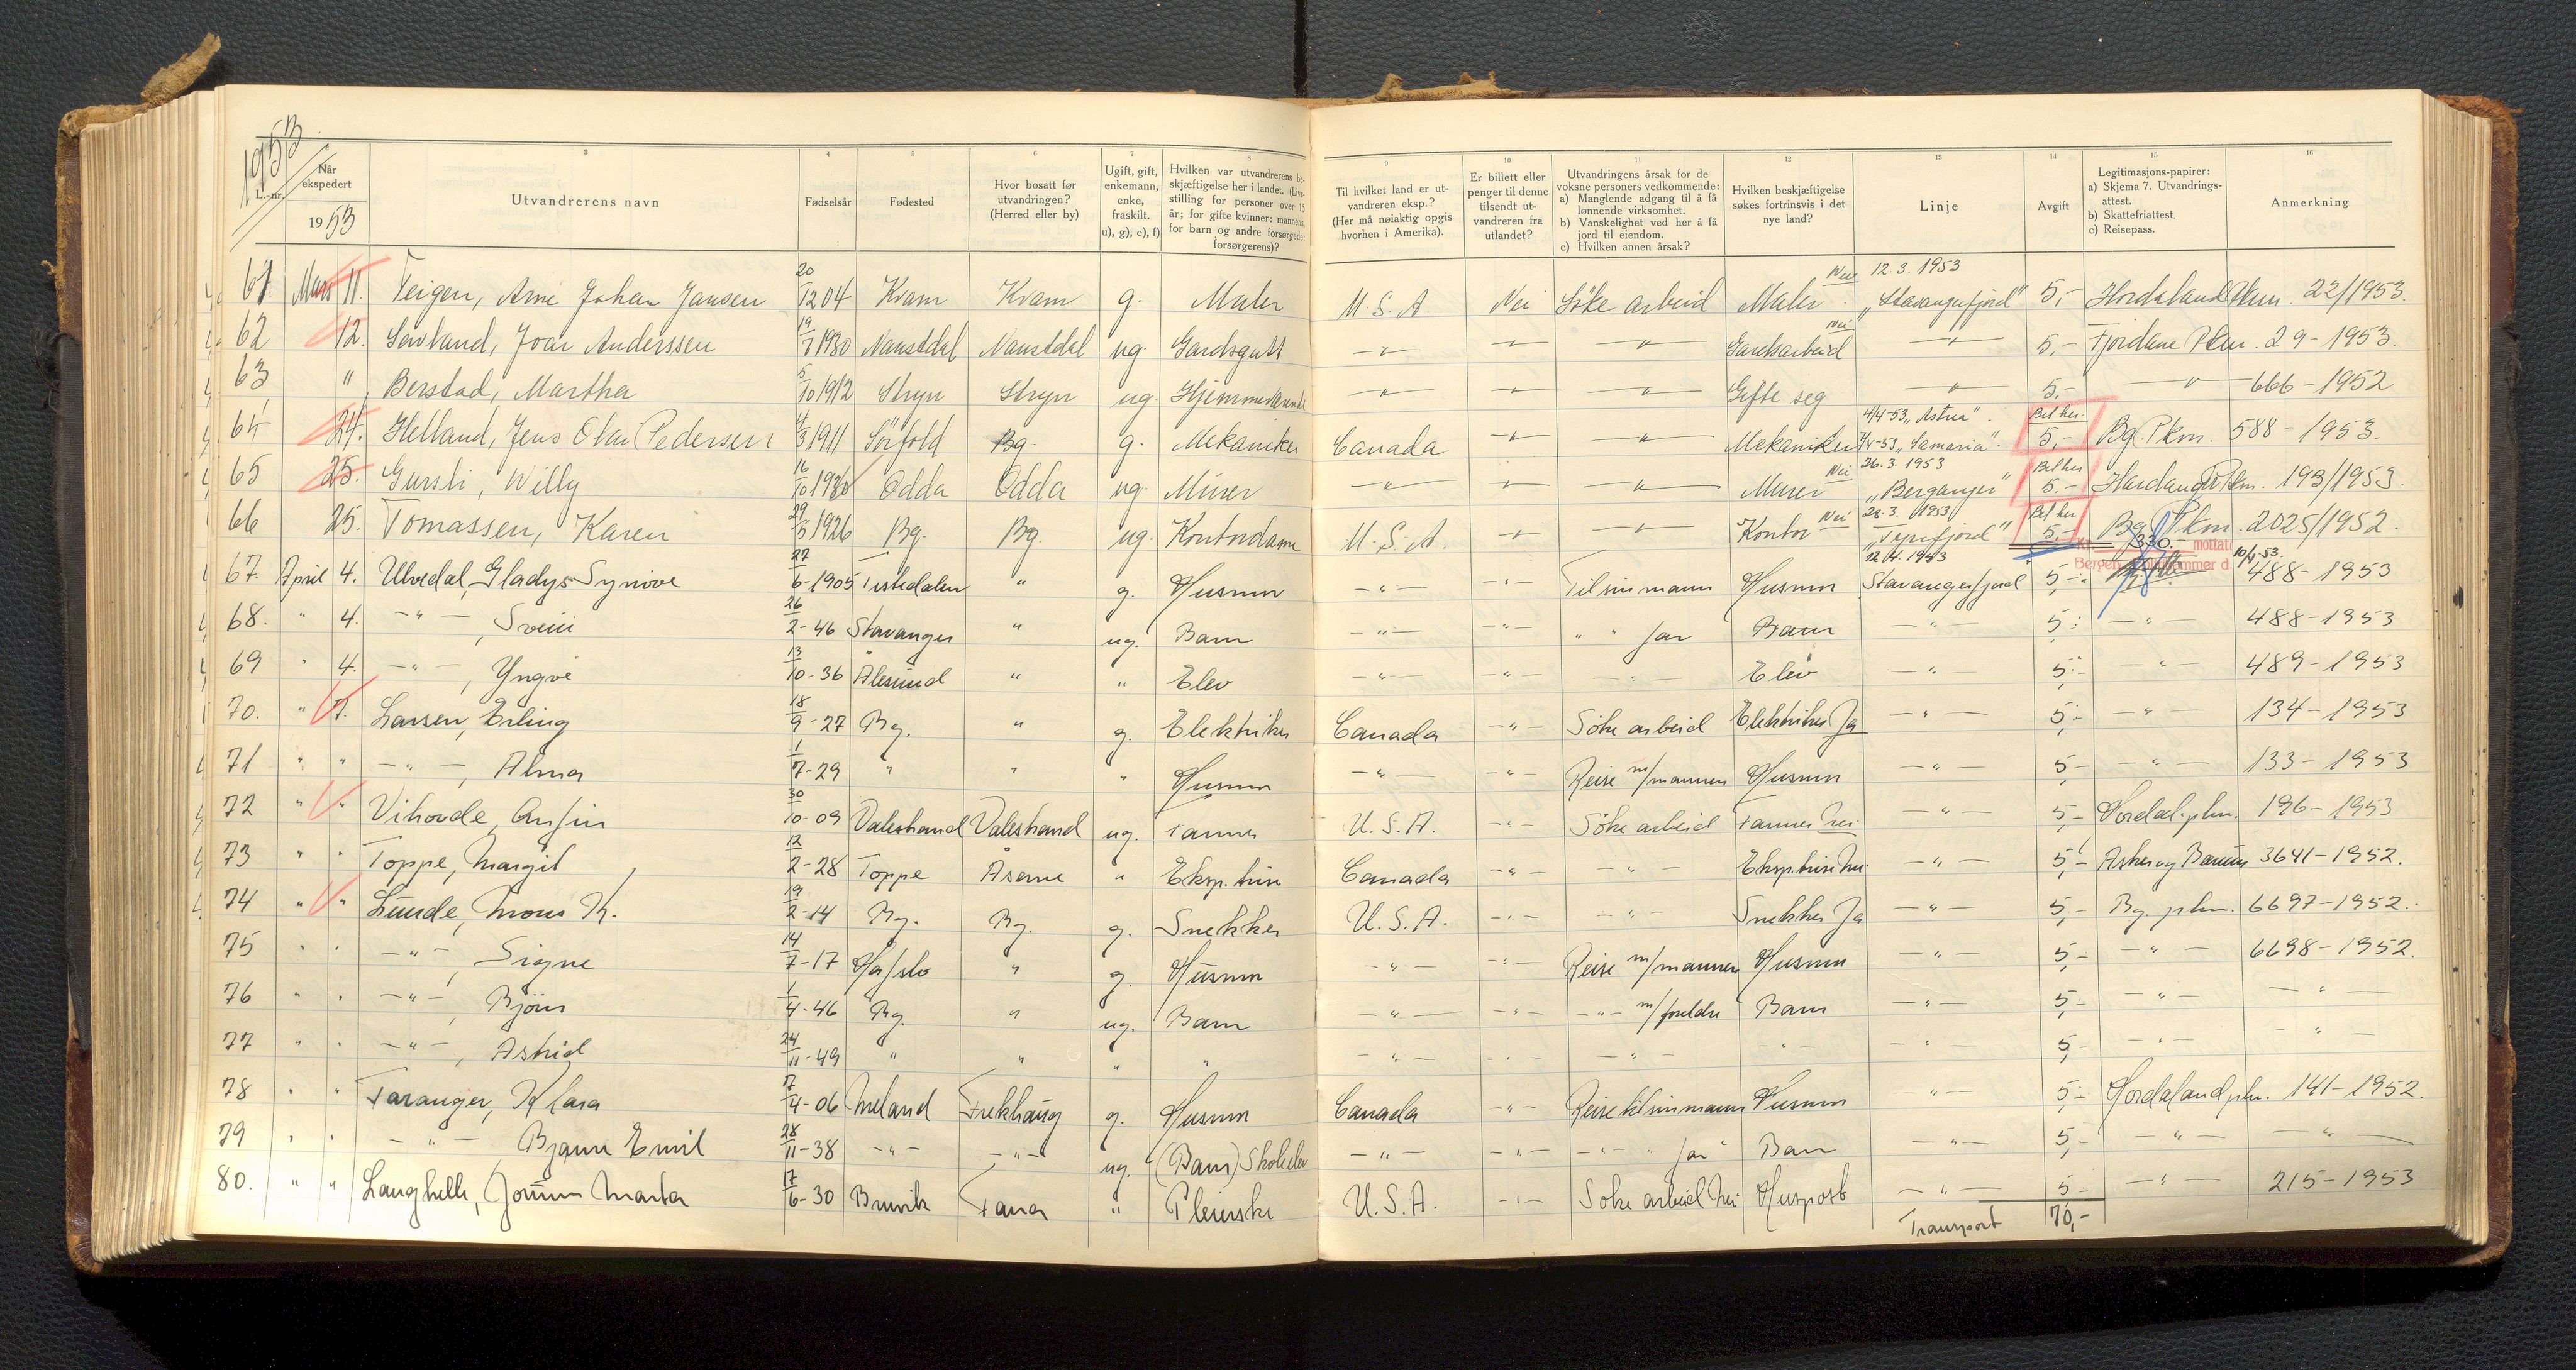 1953
L.-nr.
Når ekspedert
1953
3
Utvandrerens navn
4
Fødselsår
5
Fødested
6
Hvor bosatt før utvandringen? (Herred eller by)
7
Ugift, gift, enkemann, enke, fraskilt. u), g), e), f)
8
Hvilken var utvandrerens beskjæftigelse her i landet. (Livsstilling for personer over 15 år; for gifte kvinner: mannens, for barn og andre forsørgede: forsørgerens)?
9
Til hvilket land er utvandreren eksp.? (Her må nøiaktig opgis hvorhen i Amerika).
10
Er billett eller penger til denne tilsendt utvandreren fra utlandet?
11
Utvandringens årsak for de voksne personers vedkommende:
a) Manglende adgang til å få lønnende virksomhet.
b) Vanskelighet ved her å få jord til eiendom.
c) Hvilken annen årsak?
12
Hvilken beskjæftigelse søkes fortrinsvis i det nye land?
13
Linje
14
Avgift
15
Legitimasjons-papirer:
a) Skjema 7. Utvandringsattest.
b) Skattefriattest.
c) Reisepass.
16
Anmerkning
61 Mars 11. Teigen, Arne Johan Jansen 20/12 04 Kvam Kvam g. Maler U.S.A. Nei Söke arbeid Maler Nei 12.3.1953 "Stavangerfjord" 5,- Hordaland Pkm. 22/1953.
62 12. Savland, Joar Anderssen 19/1 1930 Naustdal Naustdal ug. Gardsgutt -"- -"- -"- Gardsarbeid Nei -"- 5,- Fjordane Pkm. 29-1953.
63 " Berstad, Martha 5/10 1912 Stryn Stryn ug. -"- -"- -"- Gifte seg -"- 5,- -"- 666-1952
64 24. Helland, Jens Olav Pedersen 4/3 1911 Sörfold Bg. g. Mekaniker Canada -"- -"- Mekaniker 4/4-53 "Astrea". 7/4-53 "Samaria". Bet her. 5,- Bg. Pkm. 588-1953.
65 25. Gursli, Willy 16/10 1930 Odda Odda ug. Murer -"- -"- -"- Murer Nei 26.3.1953 "Berganger" Bet her 5.- Hardanger Pkm. 193/1953.
66 25. Tomassen, Karen 29/5 1926 Bg. Bg. ug. Kontordame U.S.A. -"- -"- Kontor Nei 28.3.1953 "Tyrifjord" Bet her 5,- Bg. Pkm. 2025/1952.
Kr. 330.- mottatt
Bergen d. 10/4-53.
67. April 4. Ulvedal, Gladys Synöve 27/6-1905 Tistedalen " g. Husmor -"- -"- Til sin mann Husmor 12/4.1953 Stavangerfjord 5,- 488-1953
68. " 4. -"-, Svein 26/2-46 Stavanger " ug. Barn -"- -"- " " far Barn -"- 5,- -"- 488-1953
69 " 4. -"-, Yngve 13/10-36 Ålesund " " Elev -"- -"- -"- Elev -"- 5,- -"- 489-1953
70. " 7. Larsen, Erling 18/9-27 Bg. " g. Elektriker Canada -"- Söke arbeid Elektriker Ja -"- 5,- -"- 134-1953
71 " " -"-, Alma 1/7-29 " " " Husmor -"- -"- Reise m/mannen Husmor -"- 5,- -"- 133-1953
72 " " Vihovde, Anfin 30/10-09 Valestrand Valestrand ug. Tanner U.S.A. -"- Söke arbeid Tanner Nei -"- 5,- Hordal. pkm. 196-1953
73 " " Toppe, Margit 12/2-28 Toppe Åsane " Eksp.trise Canada -"- -"- Eksp.trise Nei -"- 5,- Asker og Bærum 3641-1952.
74 " " Lunde, Mons K. 19/2-14 Bg. Bg. g. Snekker U.S.A. -"- -"- Snekker Ja -"- 5,- Bg. pkm. 6697-1952.
75 " " -"-, Signe 14/7-17 Hafslo " g. Husmor -"- -"- Reise m/mannen Husmor -"- 5,- -"- 6698-1952.
76 " " -"-, Björn 1/4-46 Bg. " ug. Barn -"- -"- -"- m/foreldre Barn -"- 5,- -"- -"-
77 " " -"-, Astrid 24/11-49 " " " " -"- -"- -"- -"- -"- 5,- -"- -"-
78 " " Taranger, Klara 17/4-06 Meland Frekhaug g. Husmor Canada -"- Reise til sin mann Husmor -"- 5,- Hordaland pkm. 141-1952.
79 " " -"- Bjarne Emil 28/11-38 -"- -"- ug. (Barn) Skoleelev -"- -"- -"- " far Barn -"- 5,- -"- -"-
80. " " Langhelle, Jorunn Marta 17/6-30 Bruvik Fana " Pleierske U.S.A. -"- Söke arbeid Nei Huspost -"- 5,- -"- 215-1953
Transport 70,-